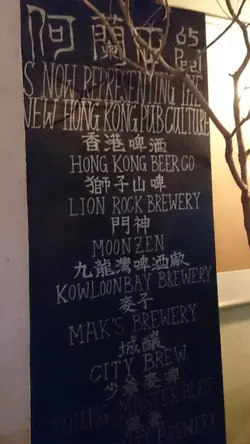 阿蘭
IS NOW REPRESENTING THE
NEW HONG KONG PUB CULTURE
香港啤酒
HONG KONG BEER CO
獅子山啤
LION ROCK BREWERY
門神
MOONZEN
九龍灣啤酒廠
KOWLOON BAY BREWERY
麥子
MAK'S BREWERY
城釀
CITY BREW
少爺麥啤
YOUNG MASTER ALES
BREWERY